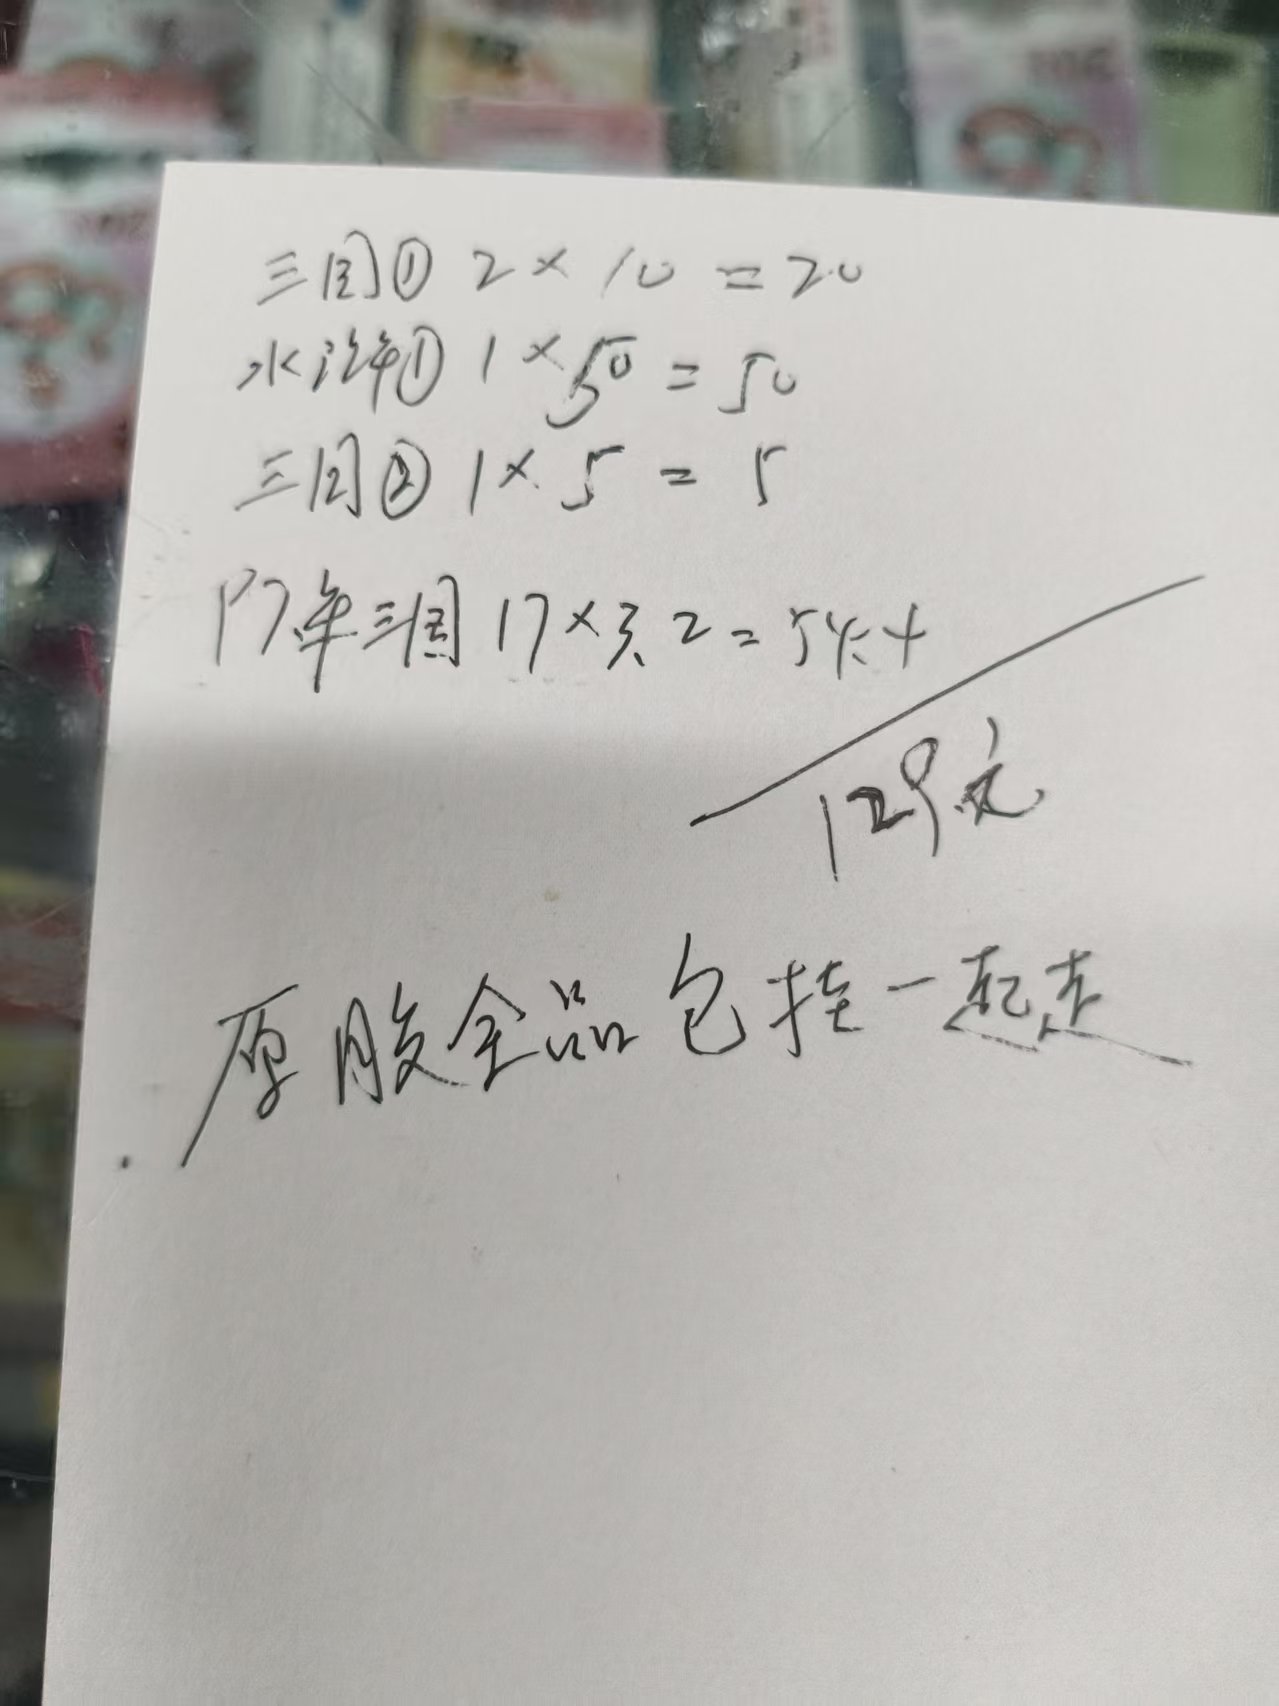 三国① 2×10=20
水浒① 1×50=50
三国② 1×5=5
17年三国 17×3.2=54.4
129元
原胶全品包挂一起走